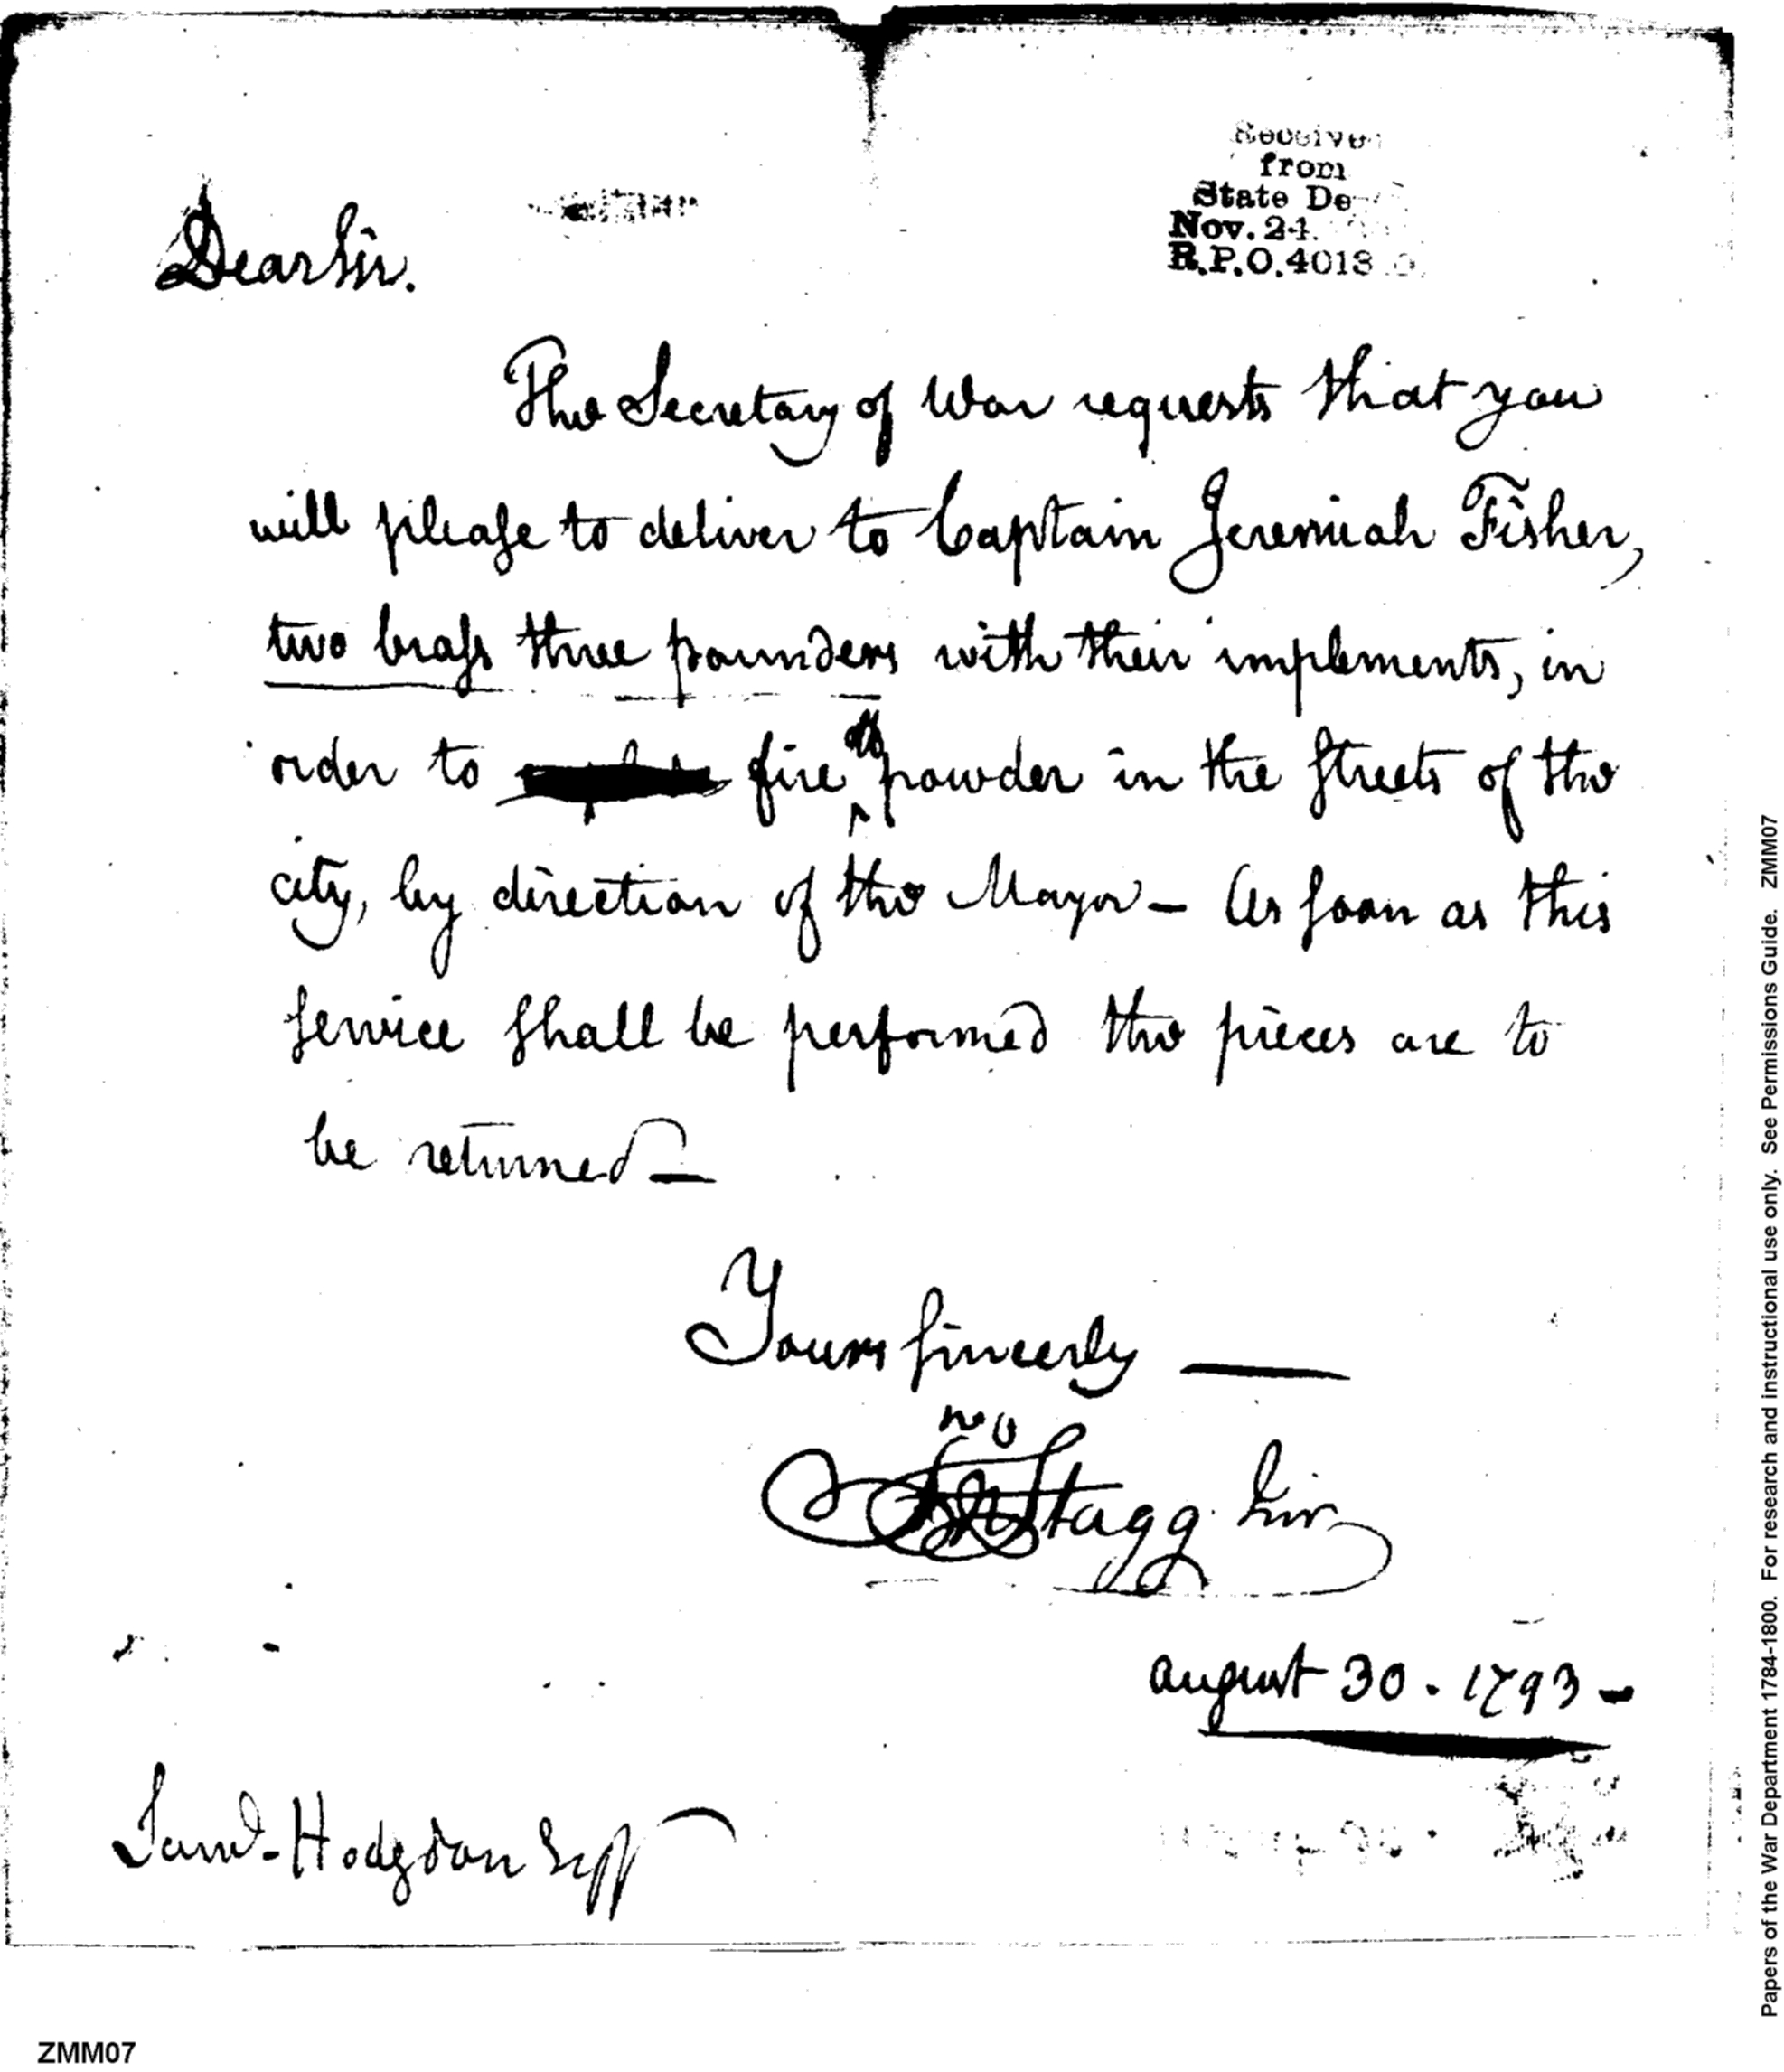 Received
from
State De
Nov. 24.
R.P.O. 4013
Dear Sir.
The Secretary of War requests that you
will please to deliver to Captain Jeremiah Fisher,
two brass three pounders with their implements, in
order to fire off powder in the streets of the
city, by direction of the Mayor – As soon as this
service shall be performed the pieces are to
be returned –
Yours sincerely —
Jno Stagg Junr
august 30 . 1793 –
Saml. Hodgdon Esqr
Papers of the War Department 1784-1800. For research and instructional use only. See Permissions Guide. ZMM07
ZMM07